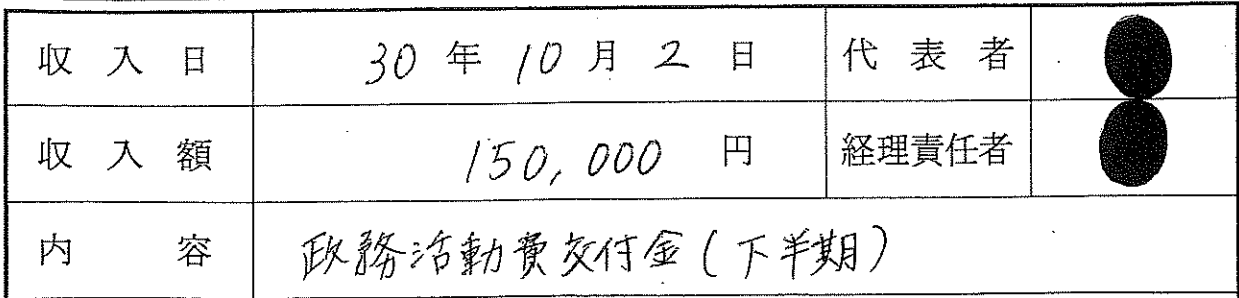 収入日 30年10月2日 代表者
収入額 150,000円 経理責任者
内容 政務活動費交付金(下半期)